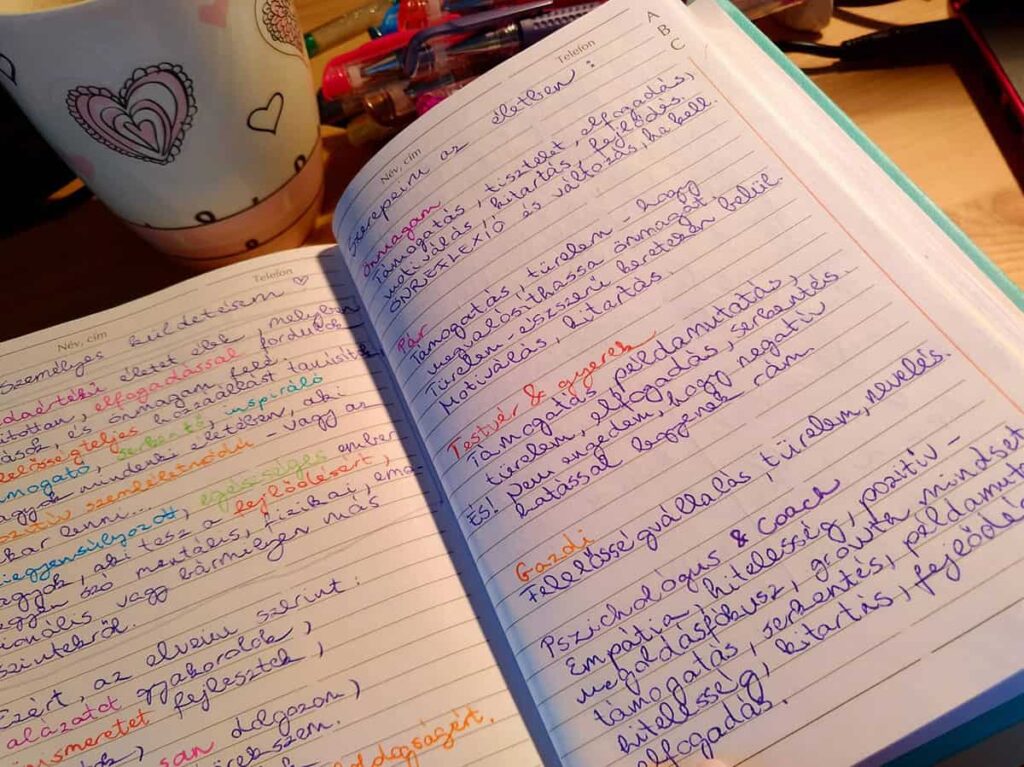 Név, cím Telefon
Személyes küldetésem ♡
életet élek, melyben
elfogadással fordulok
és önmagam felé.
hozzáállást tanúsítok,
serkentő, inspiráló
vagyok mindenki életében, aki
pozitív szemléletmódú - vagy az
akar lenni...
kiegyensúlyozott, egészséges ember
vagyok, aki tesz a fejlődésért,
legyen szó mentális, fizikai, emo-
cionális vagy bármilyen más
szintekről.
Ezért, az elveim szerint:
alázatot gyakorolok,
önismeretet fejlesztek,
dolgozom,
Név, cím Telefon
A
B
C
Szerepeim az életben:
Önmagam
Támogatás, tisztelet, elfogadás,
motiválás, kitartás, fejlődés.
ÖNREFLEXIÓ és változás, ha kell.
Pár
Támogatás, türelem - hogy
megvalósíthassa önmagát.
Türelem - észszerű kereteken belül.
Motiválás, kitartás.
Testvér & gyerek
Támogatás, példamutatás,
türelem, elfogadás, serkentés.
ÉS! Nem engedem, hogy negatív
hatással legyenek rám.
Gazdi
Felelősségvállalás, türelem, nevelés.
Pszichológus & Coach
Empátia, hitelesség, pozitív-
megoldásfókusz, growth mindset
támogatás, serkentés, példamuta
hitelesség, kitartás, fejlődés
elfogadás.